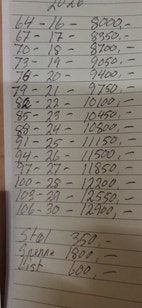 2026
64 - 16 - 8000,-
67 - 17 - 8350,-
70 - 18 - 8700,-
73 - 19 - 9050,-
76 - 20 - 9400,-
79 - 21 - 9750,-
82 - 22 - 10100,-
85 - 23 - 10450,-
88 - 24 - 10800,-
91 - 25 - 11150,-
94 - 26 - 11500,-
97 - 27 - 11850,-
100 - 28 - 12200,-
103 - 29 - 12550,-
106 - 30 - 12900,-
Stol 350,-
1800,-
List 600,-